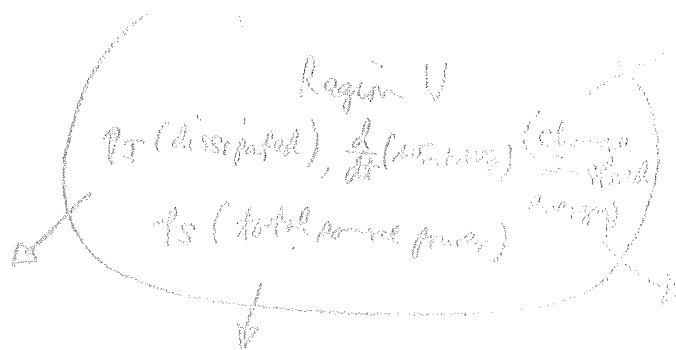 Region V
P_J (dissipated), d/dt (W_m + W_e) (change stored energy)
P_S (total source power)